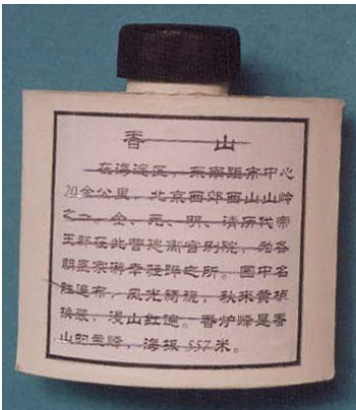 香山
在海淀区，东南距市中心
20余公里，北京西郊西山山岭
之一。金、元、明、清历代帝
王都在此营建离宫别院，为各
朝皇家游幸驻跸之所。园中名
胜遍布，风光旖旎，秋来黄栌
换装，漫山红遍。香炉峰是香
山的主峰，海拔557米。